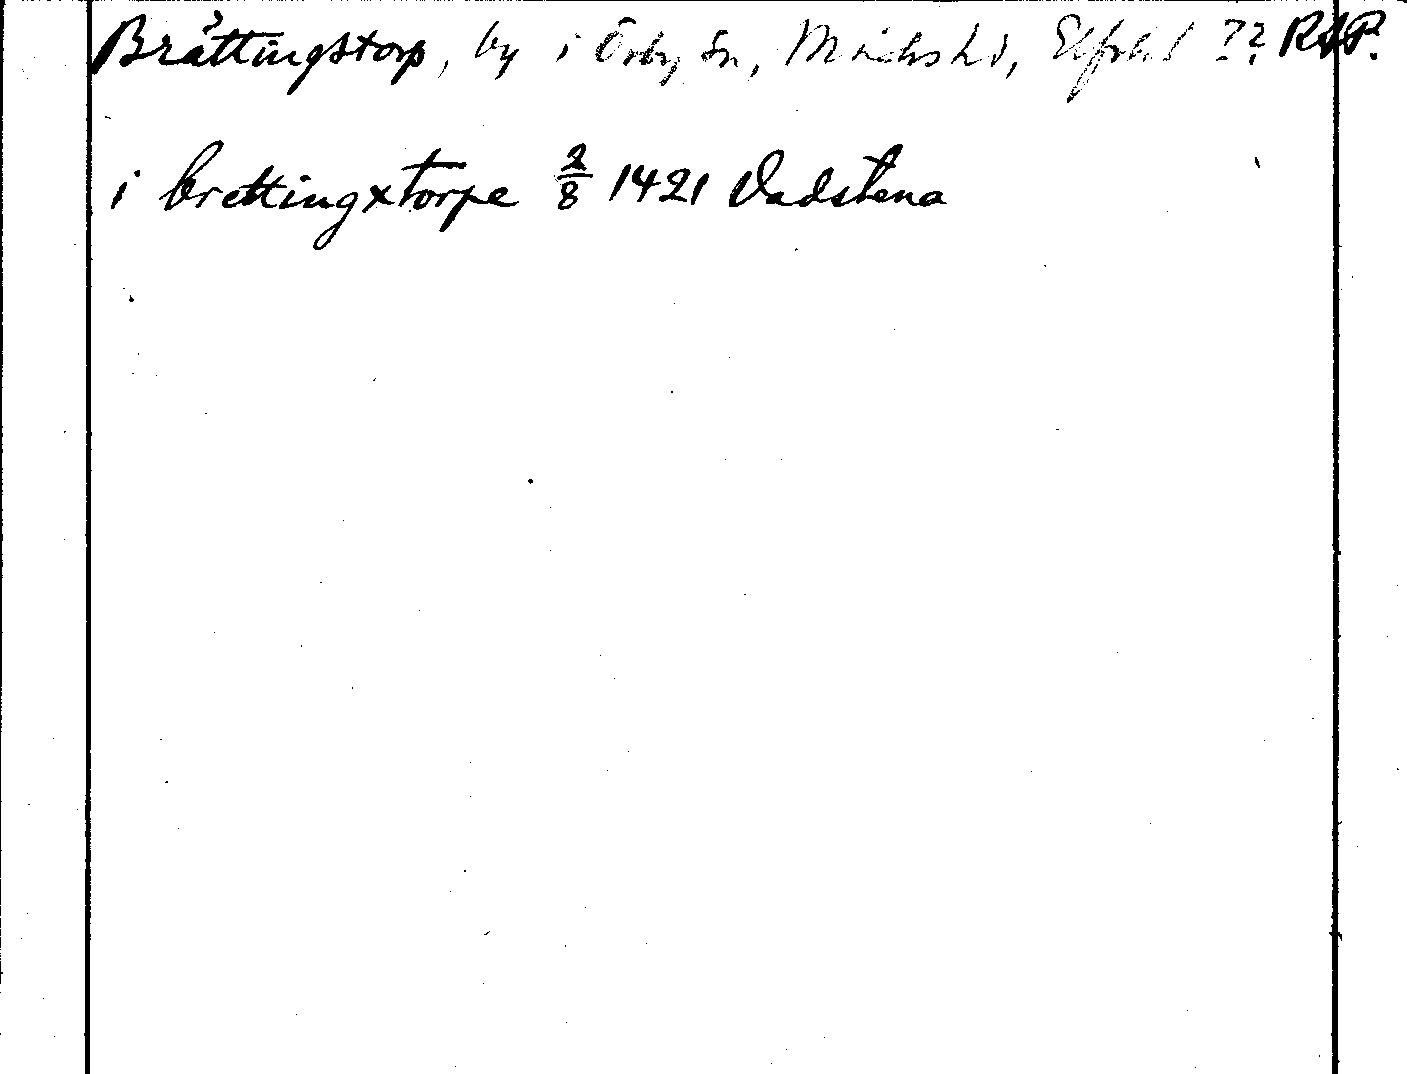 Brättingstorp, by i Örby sn, Marks hd, Elfsbl ?? RAP.
i brettingxtorpe 2/8 1421 Vadstena